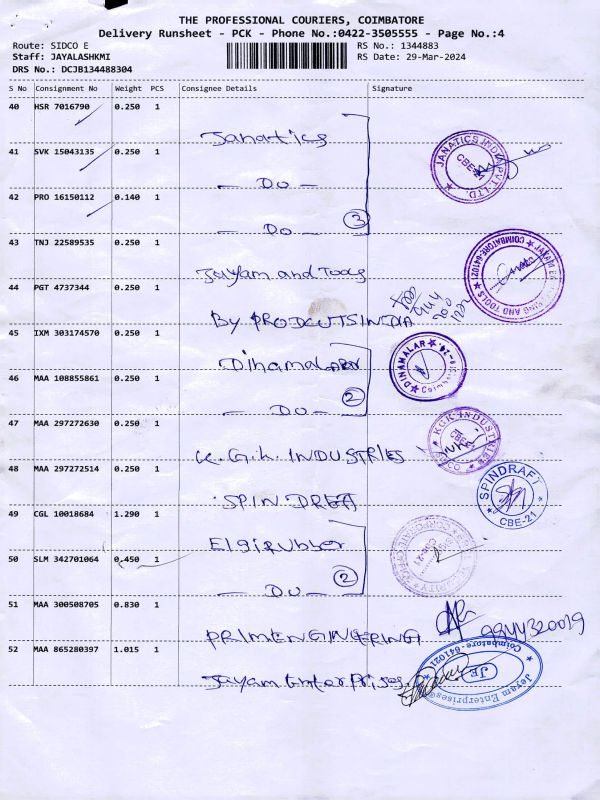 THE PROFESSIONAL COURIERS, COIMBATORE
Delivery Runsheet - PCK - Phone No.:0422-3505555 - Page No.:4
Route: SIDCO E RS No.: 1344883
Staff: JAYALASHKMI RS Date: 29-Mar-2024
DRS No.: DCJB134488304
S No Consignment No Weight PCS Consignee Details Signature
40 HSR 7016790 0.250 1
Janatics
41 SVK 15043135 0.250 1
— Do —
JANATICS INDIA PVT. LTD. CBE
42 PRO 16150112 0.140 1
— Do —
3
43 TNJ 22589535 0.250 1
Jayam and Tools
AND TOOLS COIMBATORE-641021
44 PGT 4737344 0.250 1
By PRODCUTSINDIA
45 IXM 303174570 0.250 1
Dinamalar
DINAMALAR
46 MAA 108855861 0.250 1
— Do —
2
47 MAA 297272630 0.250 1
K.G.K. INDUSTRIES
KGK INDUSTRIES CBE
48 MAA 297272514 0.250 1
SPINDRAFT
CBE-21
49 CGL 10018684 1.290 1
Elgirubber
50 SLM 342701064 0.450 1
— DO —
2
51 MAA 300508705 0.830 1
PRIMENGINEERING
9944320019
52 MAA 865280397 1.015 1
Jayam Enterprises
Jeyam Enterprises Coimbatore-641021 JE